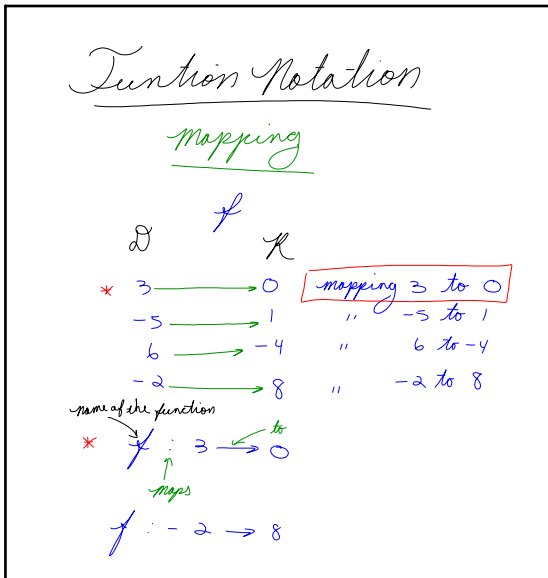 Funtion Notation
mapping
f
D R
* 3 → 0 mapping 3 to 0
-5 → 1 " -5 to 1
6 → -4 " 6 to -4
-2 → 8 " -2 to 8
name of the function
to
* f : 3 → 0
maps
f : - 2 → 8